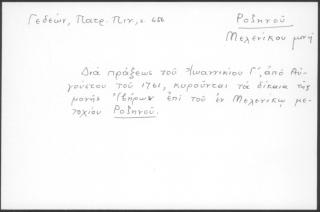 Γεδεών, Πατρ. Πιν., σ. 656
Ροζινοῦ
Μελενίκου μονή
Διὰ πράξεως τοῦ Ἰωαννικίου Γ', ἀπὸ Αὐ-
γούστου τοῦ 1761, κυροῦνται τὰ δίκαια τῆς
μονῆς Ἰβήρων ἐπὶ τοῦ ἐν Μελενίκῳ με-
τοχίου Ροζινοῦ.